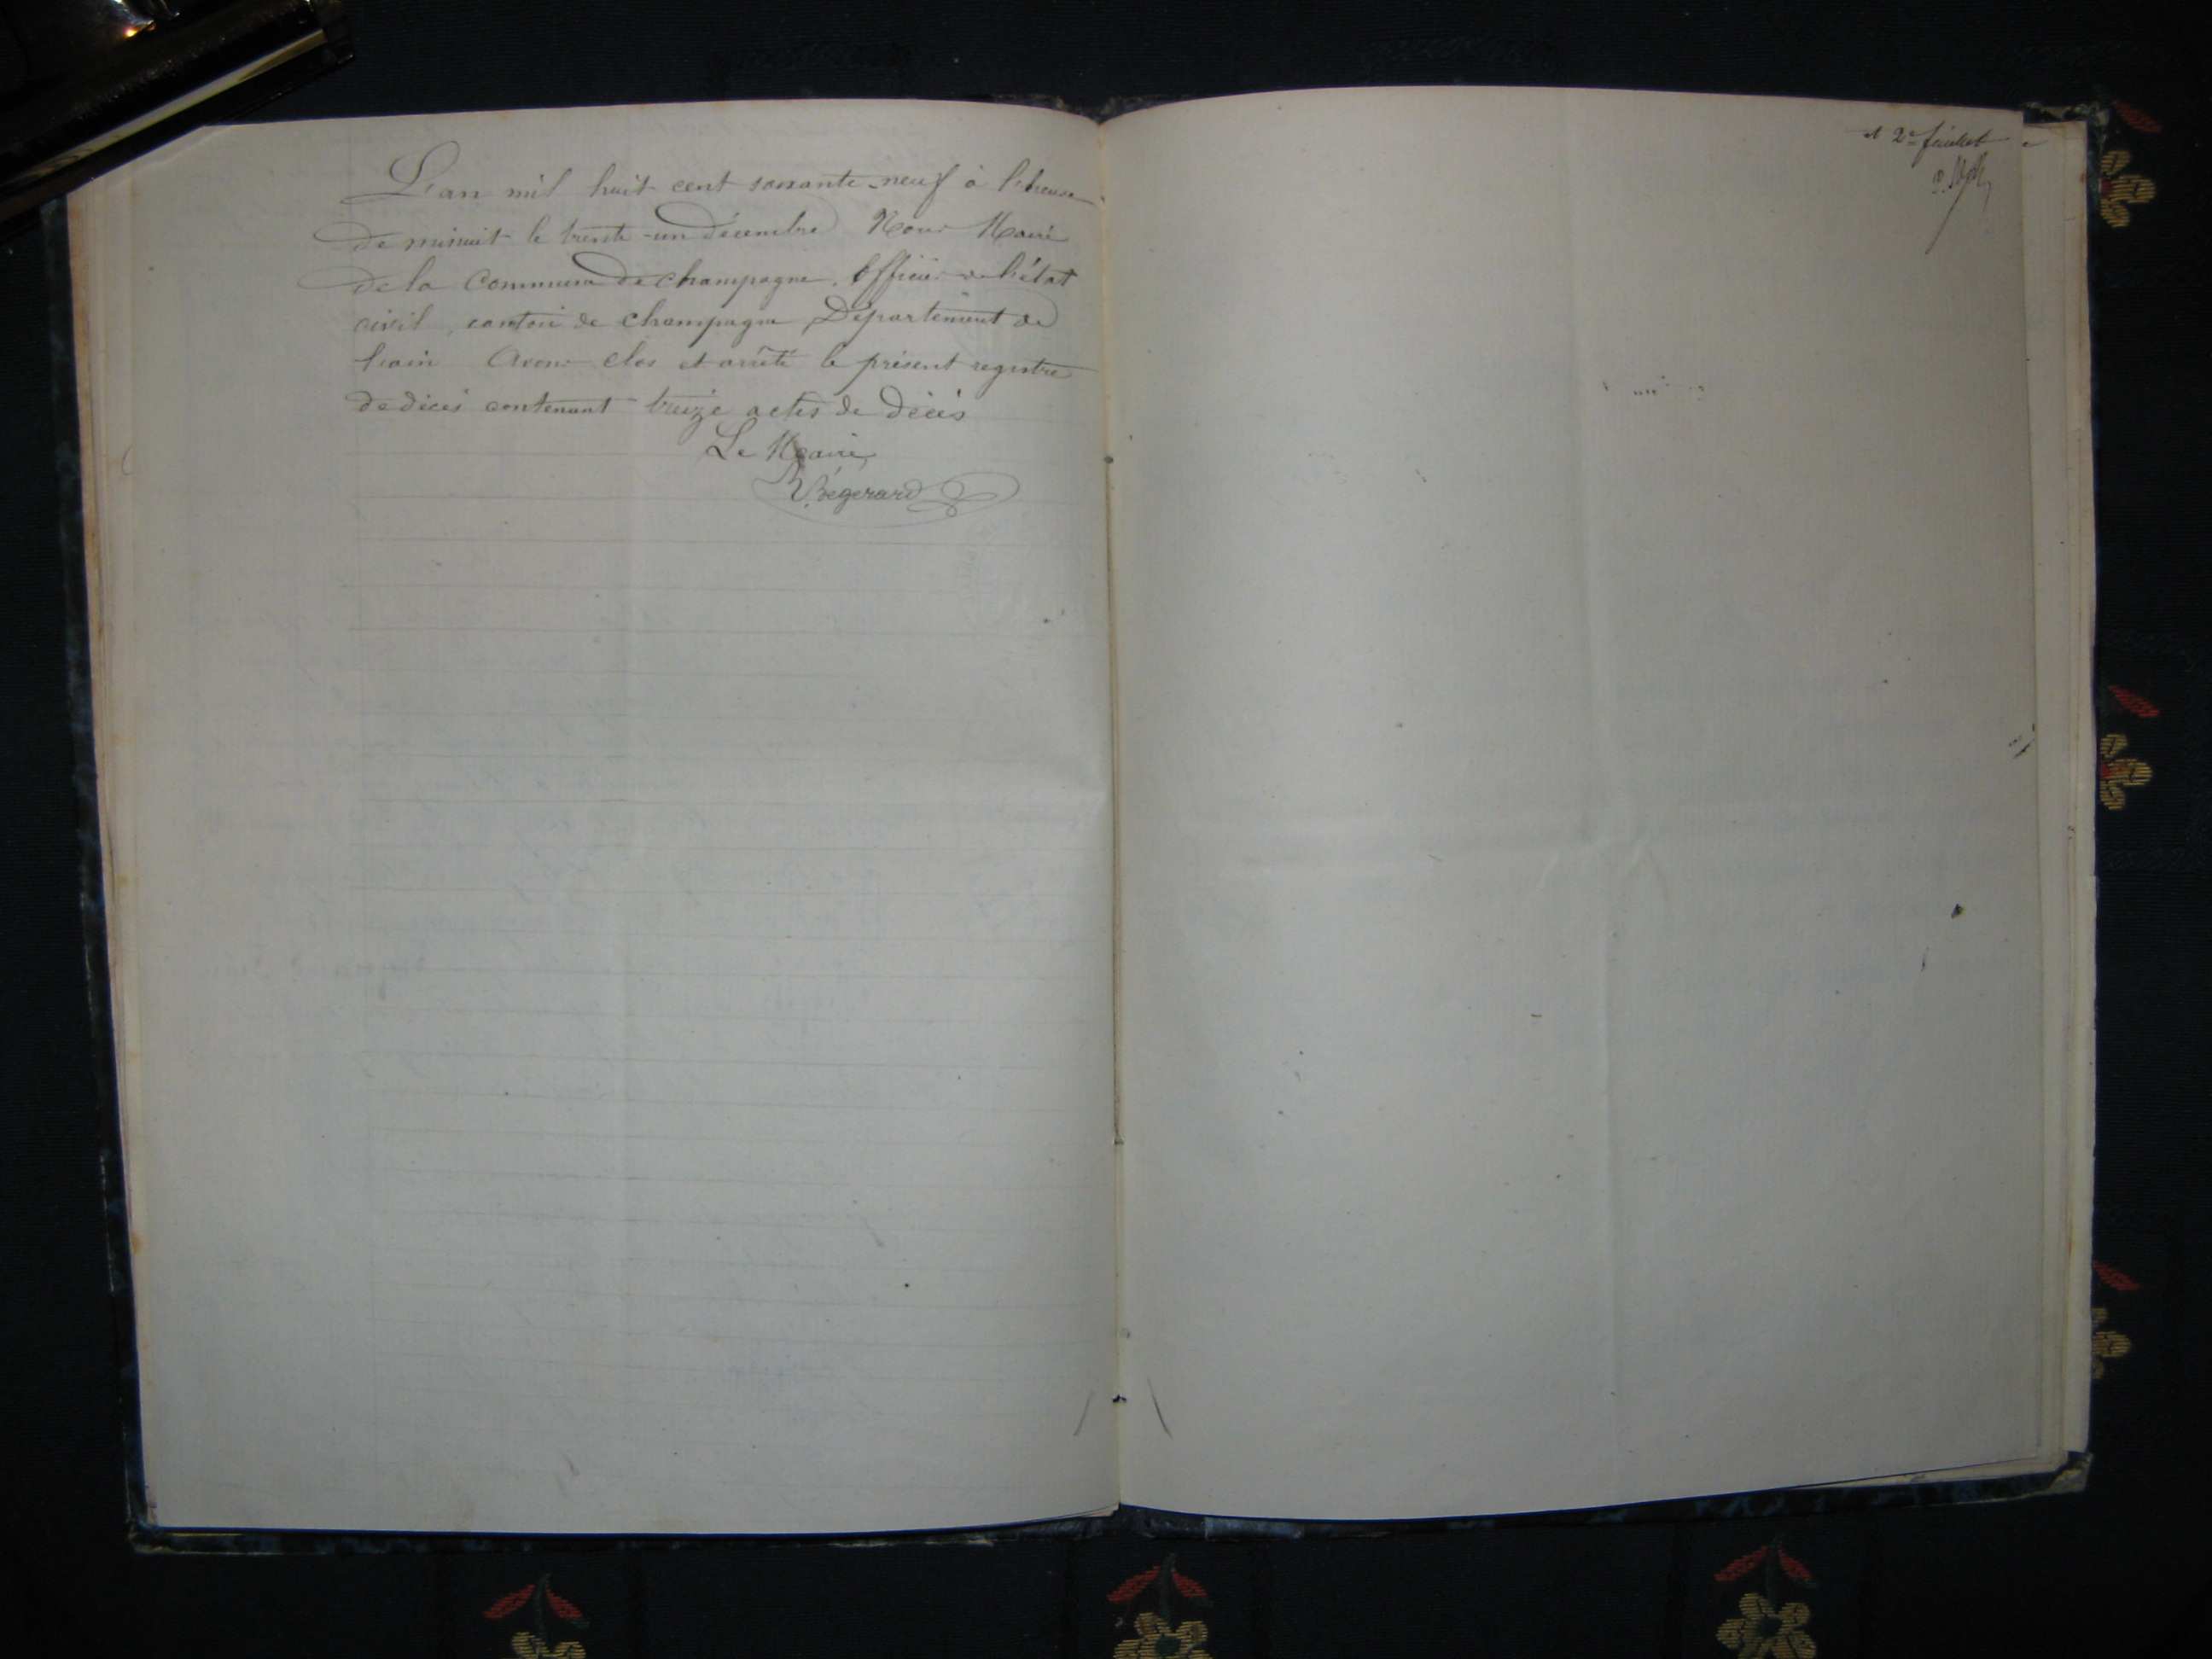 L'an mil huit cent soixante-neuf à l'heure
de minuit le trente-un décembre Nous Maire
de la Commune de champagne, Officier de l'état
civil, canton de champagne, Département de
l'ain Avons clos et arrêté le présent registre
de décès contenant treize actes de décès
Le Maire
Bégerard
et 2e feuillet